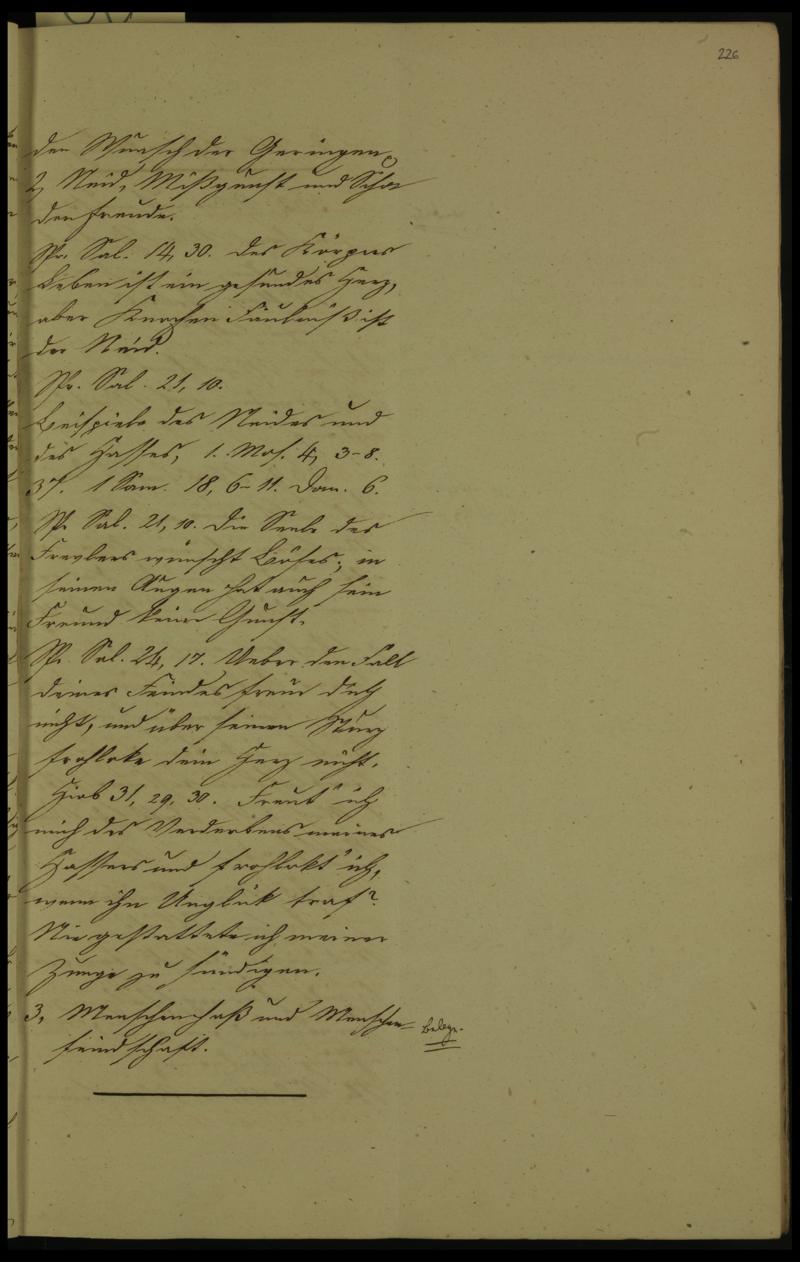 226
den Wunsch der Geringen.
2, Neid, Mißgunst und Scha
denfreude.
Spr. Sal. 14, 30. Des Körpers
Leben ist ein gesundes Herz,
aber Knochen Fäulniß ist
der Neid.
Spr. Sal. 21, 10.
Beispiele des Neides und
des Hasses, 1. Mos. 4, 3-8.
37. 1 Sam. 18, 6-11. Dan. 6.
Spr. Sal. 21, 10. Die Seele des
Frevlers wünscht Böses; in
seinen Augen hat auch sein
Freund keine Gunst.
Spr. Sal. 24, 17. Ueber den Fall
deines Feindes freue dich
nicht, und über seinen Sturz
frohloke dein Herz nicht.
Hiob 31, 29, 30. Freut' ich
mich des Verderbens meines
Hassers und frohlokt' ich,
wenn ihn Unglük traf?
Nie gestattete ich meiner
Zunge zu sündigen.
3, Menschenhaß und Menschen=
feindschaft.
Belege.